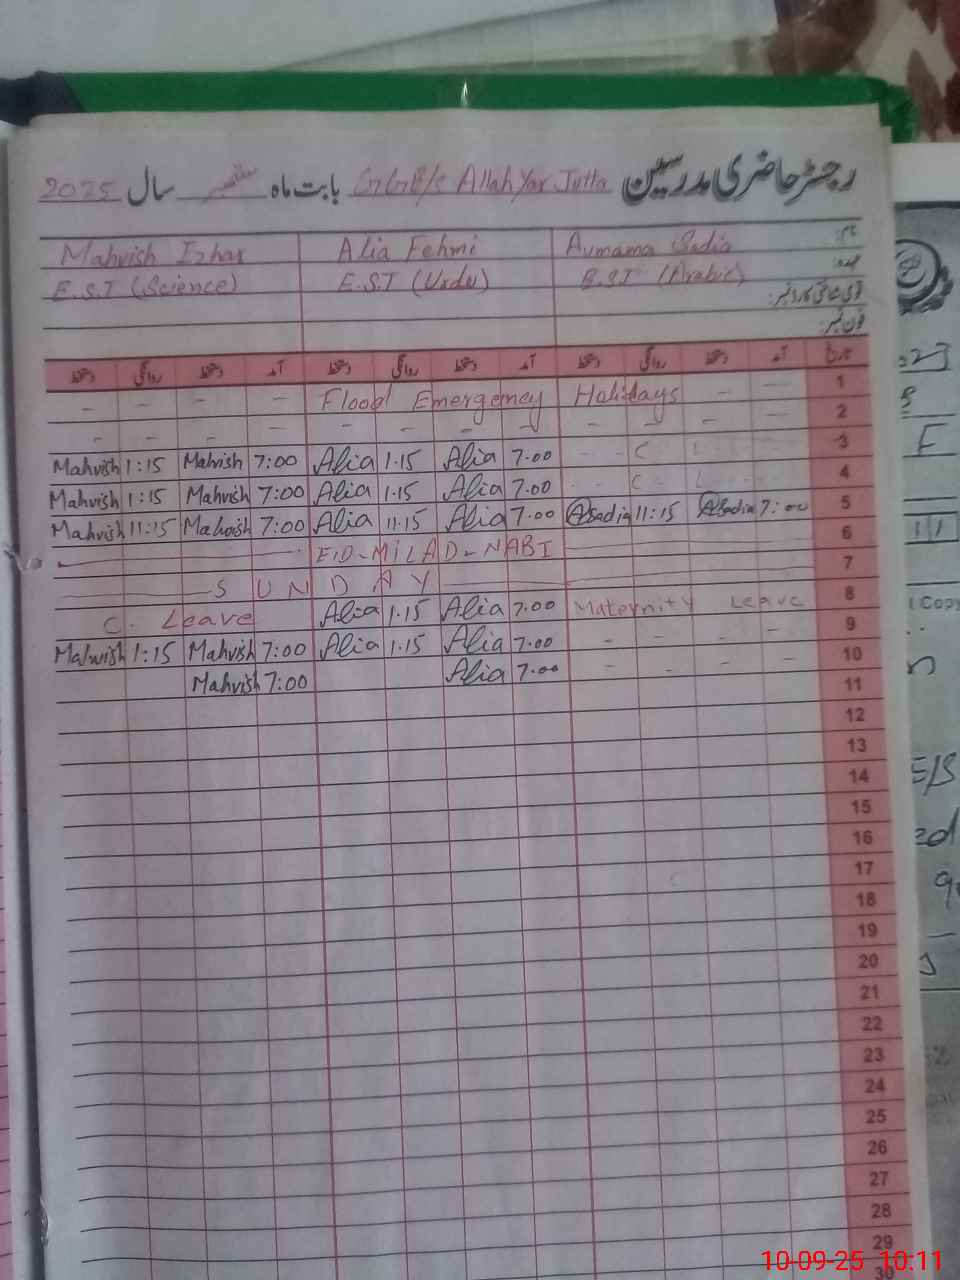 رجسٹر حاضری مدرسین GGE/S Allah Yar Jutta بابت ماہ ستمبر سال 2025
نام:
Mahvish Izhar Alia Fehmi Aumama Sadia
عہدہ:
E.S.T (Science) E.S.T (Urdu) E.S.T (Arabic)
قومی شناختی کارڈ نمبر:
فون نمبر:
تاریخ آمد دستخط روانگی دستخط آمد دستخط روانگی دستخط آمد دستخط روانگی دستخط
- - - - Flood Emergency Holidays - - 1
- - - - - - - - - - 2
Mahvish 1:15 Mahvish 7:00 Alia 1.15 Alia 7.00 C L 3
Mahvish 1:15 Mahvish 7:00 Alia 1.15 Alia 7.00 C L 4
Mahvish 11:15 Mahvish 7:00 Alia 11.15 Alia 7.00 ASadia 11:15 ASadia 7:00 5
EID-MILAD-NABI 6
SUNDAY 7
C. Leave Alia 1.15 Alia 7.00 Maternity Leave 8
Mahvish 1:15 Mahvish 7:00 Alia 1.15 Alia 7.00 - - - - 9
Mahvish 7:00 Alia 7.00 - - - - 10
11
12
13
14
15
16
17
18
19
20
21
22
23
24
25
26
27
28
29
30
023
F
11
Copy
E/S
ed
10-09-25 10:11